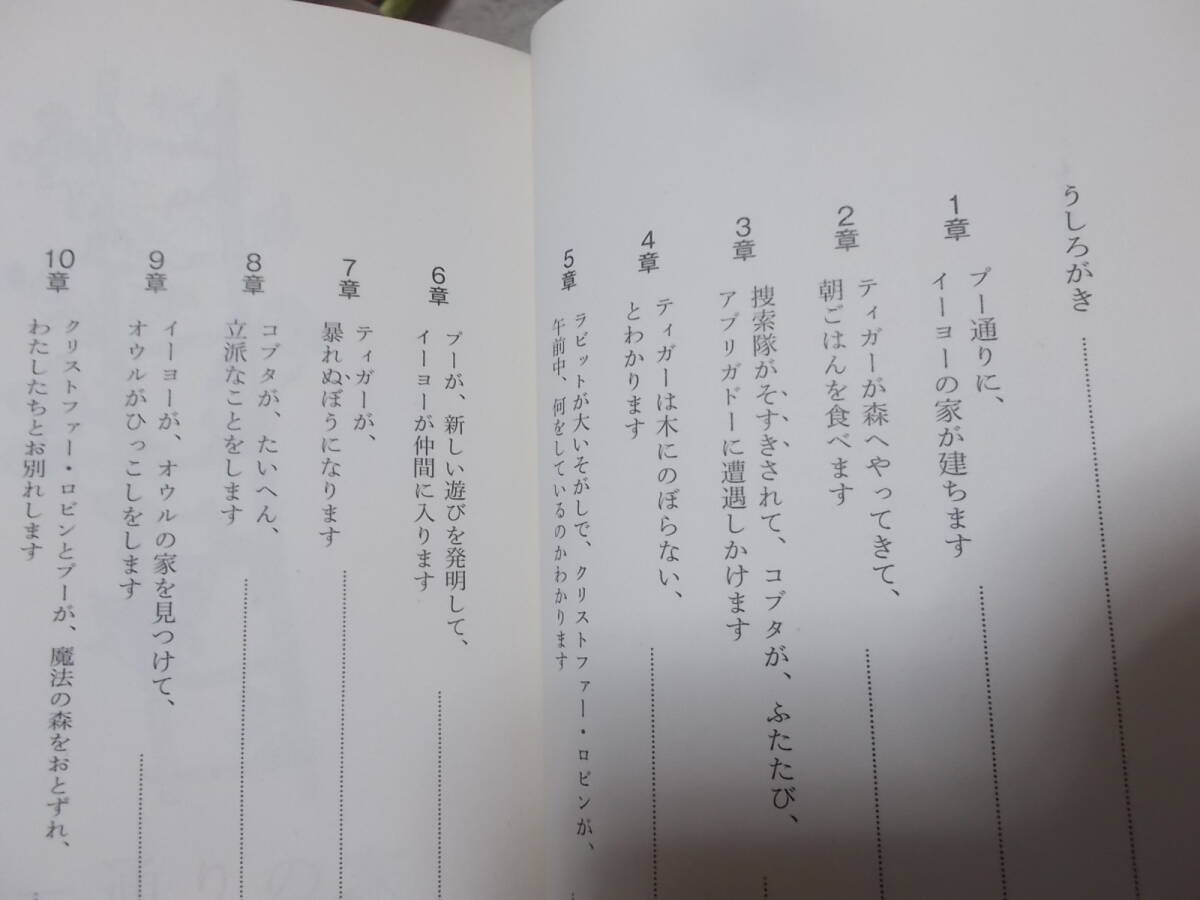 うしろがき
1章
プー通りに、
イーヨーの家が建ちます
2章
ティガーが森へやってきて、
朝ごはんを食べます
3章
捜索隊がそすきされて、コブタが、ふたたび、
アブリガドーに遭遇しかけます
4章
ティガーは木にのぼらない、
とわかります
5章
ラビットが大いそがしで、クリストファー・ロビンが、
午前中、何をしているのかわかります
6章
プーが、新しい遊びを発明して、
イーヨーが仲間に入ります
7章
ティガーが、
暴れぬぼうになります
8章
コブタが、たいへん、
立派なことをします
9章
イーヨーが、オウルの家を見つけて、
オウルがひっこしをします
10章
クリストファー・ロビンとプーが、魔法の森をおとずれ、
わたしたちとお別れします